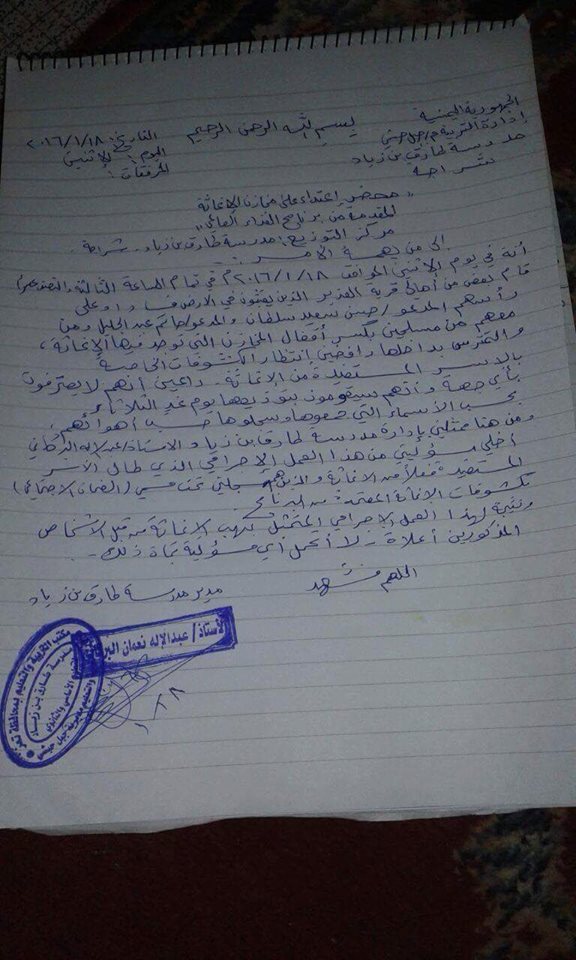 الجمهورية اليمنية
إدارة التربية م/جبل حبشي
مدرسة طارق بن زياد
شراجة
بسم الله الرحمن الرحيم
التاريخ: ٢٠١٦/١/١٨
اليوم: الإثنين
المرفقات:
"محضر إعتداء على مخازن للإغاثة
المقدمة من برنامج الغذاء العالمي"
مركز التوزيع: مدرسة طارق بن زياد - شراجة
إلى من يهمه الأمر
أنه في يوم الإثنين الموافق ٢٠١٦/١/١٨م في تمام الساعة الثالثة والنصف عصراً
قام بعض من أهالي قرية الغدير الذين يعثون في الأرض فساداً وعلى
رأسهم المدعو/حسن سعيد سلطان والمدعو/حاتم عبد الجليل ومن
معهم من مسلحين بكسر أقفال المخازن التي توجد فيها الإغاثة،
والتمترس بداخلها رافضين انتظار الكشوفات الخاصة
بالأسر المستفيدة من الإغاثة. داعين أنهم لا يعترفون
بأي جهة وأنهم سيقومون بتوزيعها يوم غدٍ الثلاثاء
بحسب الأسماء التي جمعوها وسجلوها حسب أهوائهم.
ومن هنا ممثلي بإدارة مدرسة طارق بن زياد الأستاذ/عبد الإله البركاني
أخلي مسؤوليتي من هذا العمل الإجرامي الذي طال الأسر
المستفيدة فعلاً من الإغاثة والذين سجلتي تحت مسمى (الضمان الاجتماعي)
بكشوفات الإغاثة المعتمدة من البرنامج.
ونتيجة لهذا العمل الإجرامي المتمثل بنهب الإغاثة من قبل الأشخاص
المذكورين أعلاه - لا أتحمل أي مسؤولية تجاه ذلك.
اللهم فاشهد
مدير مدرسة طارق بن زياد
الأستاذ/ عبدالإله نعمان
مكتب التربية والتعليم بمحافظة تعز
مدرسة طارق بن زياد
١/١٨